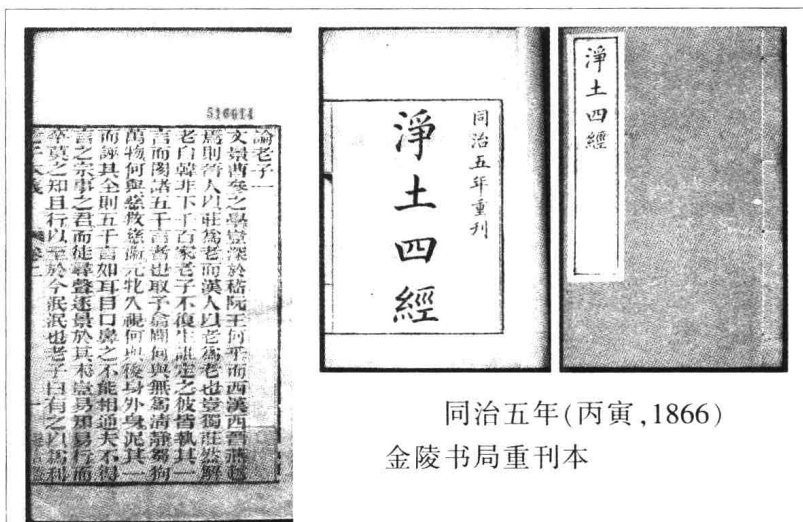 516614
論老子一
文景曹參之學豈深於嵇阮王何乎而西漢西晉燕越
焉則晉人以莊爲老而漢人以老爲老也豈獨莊然解
老自韓非下千百家老子不復生誰定之彼皆執其一
言而閡諸五千言者也取予翕闢何與無爲清靜芻狗
萬物何與慈救慈衞元牝久視何與後身外身泥其一
而誣其全則五千言如耳目口鼻之不能相通夫不得
言之宗事之君而徒尋聲逐景於其末豈易知易行而
卒莫之知且行以至於今泯泯也老子曰有之以爲利
老子本義
同治五年重刊
淨土四經
淨土四經
同治五年(丙寅,1866)
金陵书局重刊本